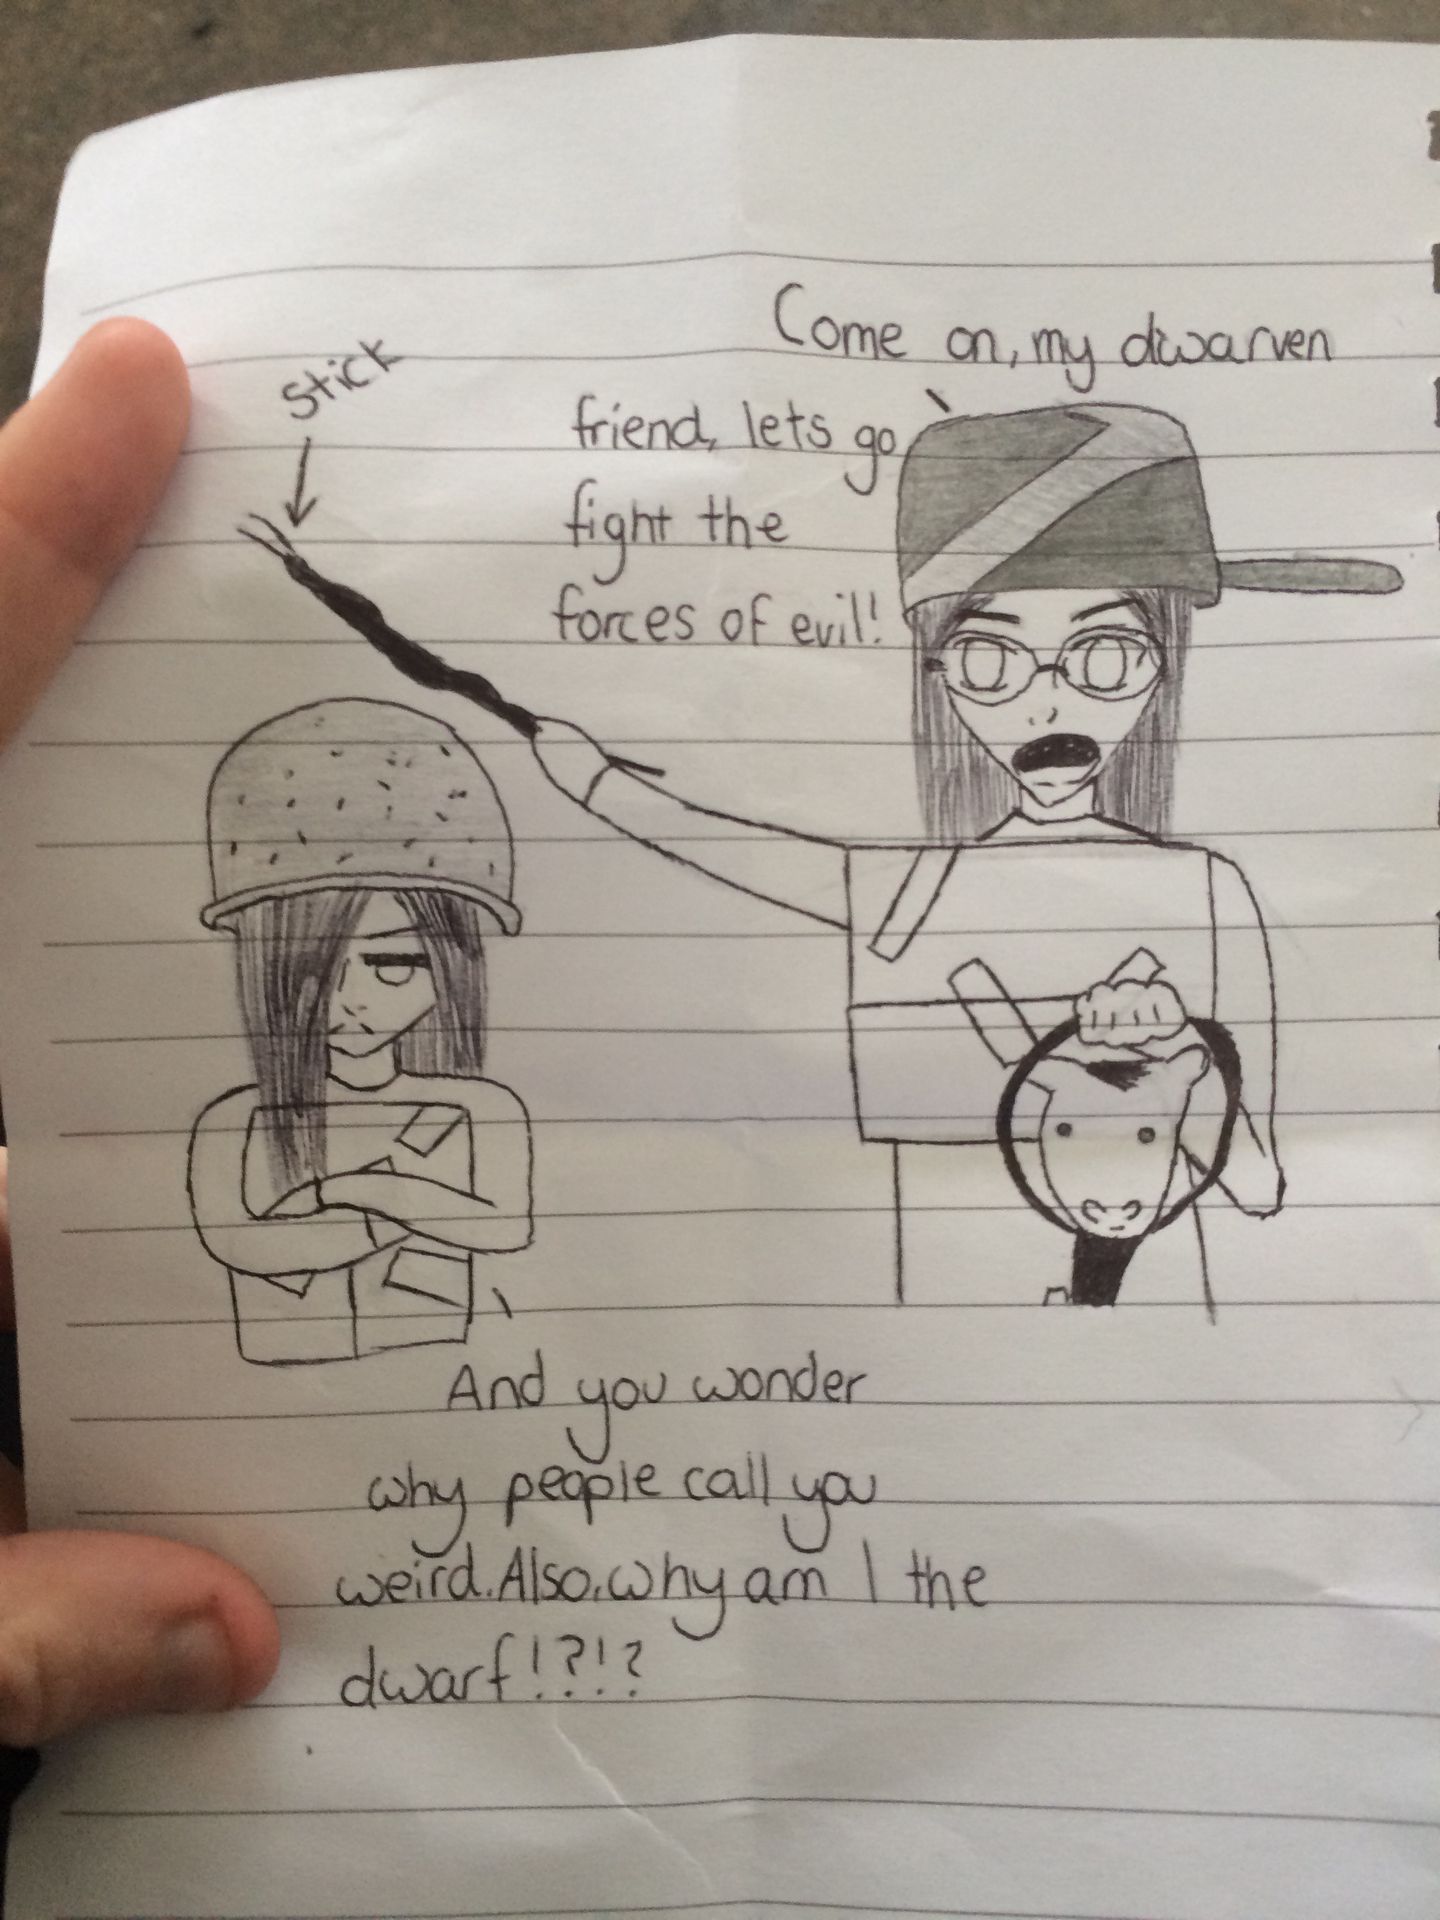 stick
Come on, my dwarven
friend, lets go
fight the
forces of evil!
And you wonder
why people call you
weird. Also, why am I the
dwarf!?!?